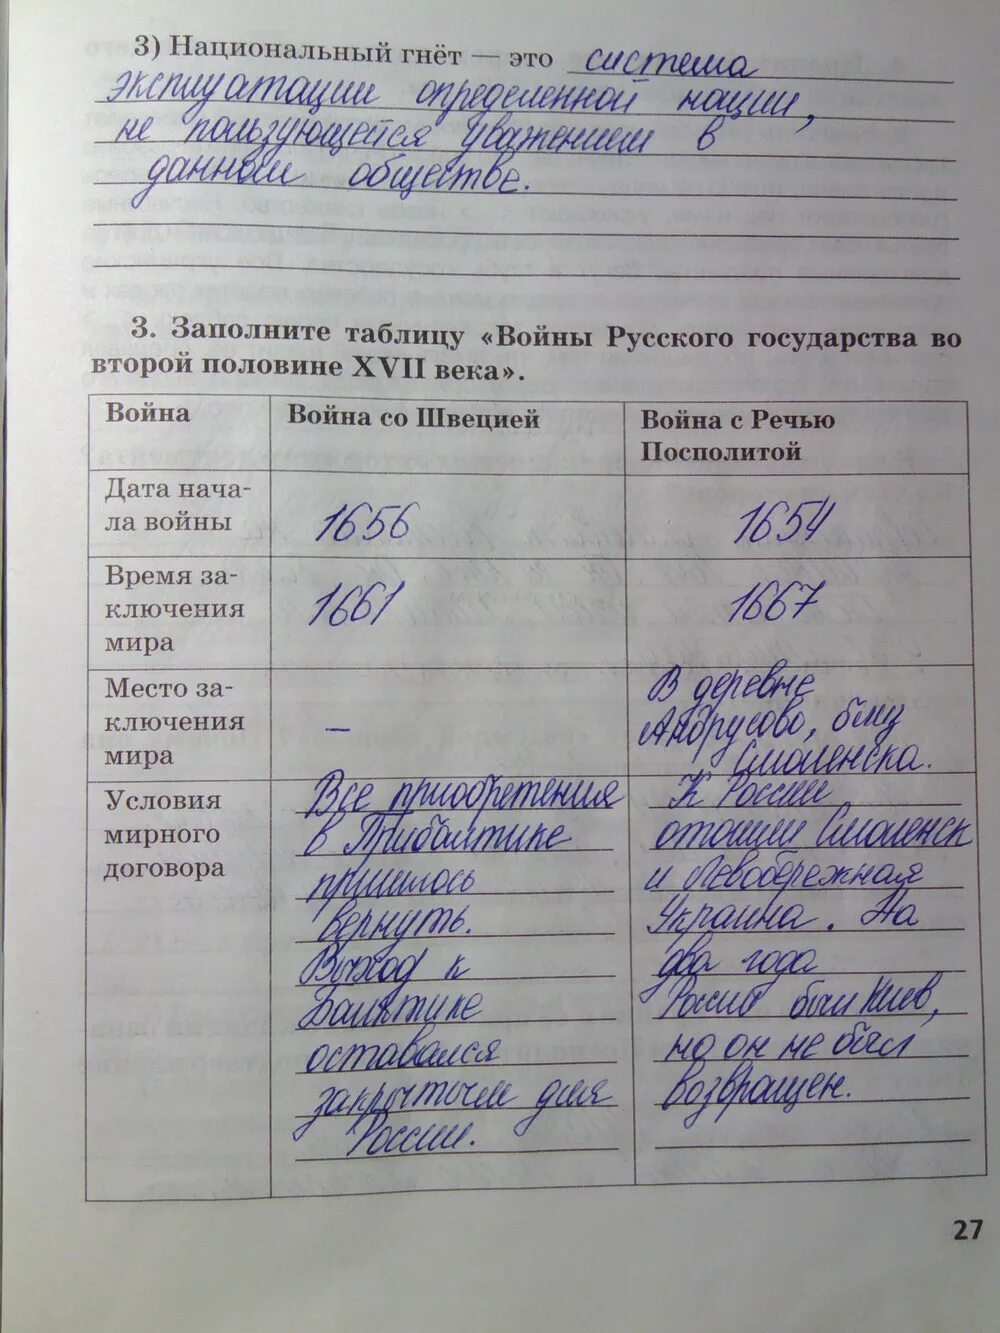 3) Национальный гнёт — это система
эксплуатации определенной нации,
не пользующейся уважением в
данном обществе.
3. Заполните таблицу «Войны Русского государства во
второй половине XVII века».
Война
Война со Швецией
Война с Речью
Посполитой
Дата нача-
ла войны
1656
1654
Время за-
ключения
мира
1661
1667
Место за-
ключения
мира
–
В деревне
Андрусово, близ
Смоленска.
Условия
мирного
договора
Все приобретения
в Прибалтике
пришлось
вернуть.
Выход к
Балтике
оставался
закрытым для
России.
К России
отошли Смоленск
и Левобережная
Украина. На
два года
России был Киев,
но он не был
возвращен.
27